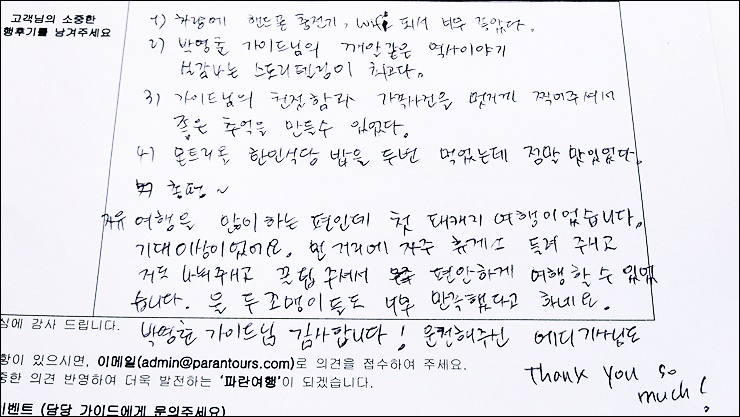 고객님의 소중한
행후기를 남겨주세요
1) 차량에 핸드폰 충전기, wifi 되서 너무 좋았다.
2) 박영훈 가이드님의 깨알같은 역사이야기
실감나는 스토리텔링이 최고다.
3) 가이드님의 친절함과 가족사진을 멋지게 찍어주셔서
좋은 추억을 만들수 있었다.
4) 몬트리올 한인식당 밥을 두번 먹었는데 정말 맛있었다.
총평~
자유 여행을 많이하는 편인데 첫 패캐지 여행이었습니다.
기대이상이었어요. 먼 거리에 자주 휴게소 들려 주시고
나눠주시고 꿀팁 주셔서 편안하게 여행할 수 있었
습니다. 울 두 조맹이들도 너무 만족했다고 하네요.
박영훈 가이드님 감사합니다! 운전해주신 에디기사님도
Thank you so
much!
심에 감사 드립니다.
항이 있으시면, 이메일(admin@parantours.com)로 의견을 접수하여 주세요.
중한 의견 반영하여 더욱 발전하는 '파란여행'이 되겠습니다.
이벤트 (담당 가이드에게 문의주세요)